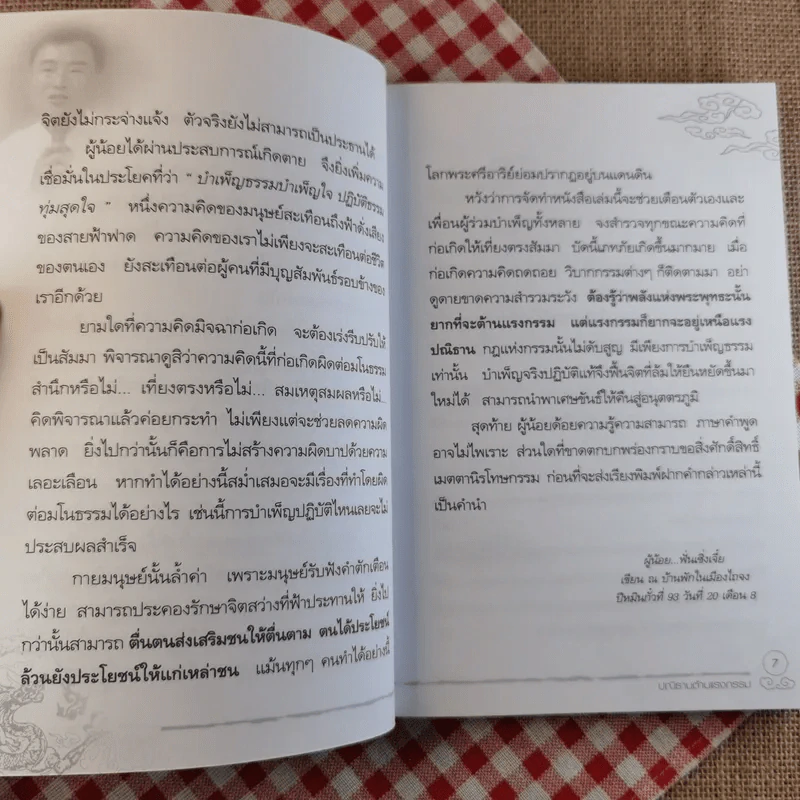 จิตยังไม่กระจ่างแจ้ง ตัวจริงยังไม่สามารถเป็นประธานได้
ผู้น้อยได้ผ่านประสบการณ์เกิดตาย จึงยิ่งเพิ่มความ
เชื่อมั่นในประโยคที่ว่า " บำเพ็ญธรรมบำเพ็ญใจ ปฏิบัติธรรม
ทุ่มสุดใจ " หนึ่งความคิดของมนุษย์สะเทือนถึงฟ้าดั่งเสียง
ของสายฟ้าฟาด ความคิดของเราไม่เพียงจะสะเทือนต่อชีวิต
ของตนเอง ยังสะเทือนต่อผู้คนที่มีบุญสัมพันธ์รอบข้างของ
เราอีกด้วย
ยามใดที่ความคิดมิจฉาก่อเกิด จะต้องเร่งรีบปรับให้
เป็นสัมมา พิจารณาดูสิว่าความคิดนี้ที่ก่อเกิดผิดต่อมโนธรรม
สำนึกหรือไม่... เที่ยงตรงหรือไม่... สมเหตุสมผลหรือไม่...
คิดพิจารณาแล้วค่อยกระทำ ไม่เพียงแต่จะช่วยลดความผิด
พลาด ยิ่งไปกว่านั้นก็คือการไม่สร้างความผิดบาปด้วยความ
เลอะเลือน หากทำได้อย่างนี้สม่ำเสมอจะมีเรื่องที่ทำโดยผิด
ต่อมโนธรรมได้อย่างไร เช่นนี้การบำเพ็ญปฏิบัติไหนเลยจะไม่
ประสบผลสำเร็จ
กายมนุษย์นั้นล้ำค่า เพราะมนุษย์รับฟังคำตักเตือน
ได้ง่าย สามารถประคองรักษาจิตสว่างที่ฟ้าประทานให้ ยิ่งไป
กว่านั้นสามารถ ตื่นตนส่งเสริมชนให้ตื่นตาม ตนได้ประโยชน์
ล้วนยังประโยชน์ให้แก่เหล่าชน แม้นทุกๆ คนทำได้อย่างนี้
โลกพระศรีอาริย์ย่อมปรากฏอยู่บนแดนดิน
หวังว่าการจัดทำหนังสือเล่มนี้จะช่วยเตือนตัวเองและ
เพื่อนผู้ร่วมบำเพ็ญทั้งหลาย จงสำรวจทุกขณะความคิดที่
ก่อเกิดให้เที่ยงตรงสัมมา บัดนี้เภทภัยเกิดขึ้นมากมาย เมื่อ
ก่อเกิดความคิดถดถอย วิบากกรรมต่างๆ ก็ติดตามมา อย่า
ดูดายขาดความสำรวมระวัง ต้องรู้ว่าพลังแห่งพระพุทธะนั้น
ยากที่จะต้านแรงกรรม แต่แรงกรรมก็ยากจะอยู่เหนือแรง
ปณิธาน กฎแห่งกรรมนั้นไม่ดับสูญ มีเพียงการบำเพ็ญธรรม
เท่านั้น บำเพ็ญจริงปฏิบัติแท้จึงฟื้นจิตที่ล้มให้ยืนหยัดขึ้นมา
ใหม่ได้ สามารถนำพาเศษขันธ์ให้คืนสู่อนุตตรภูมิ
สุดท้าย ผู้น้อยด้อยความรู้ความสามารถ ภาษาคำพูด
อาจไม่ไพเราะ ส่วนใดที่ขาดตกบกพร่องกราบขอสิ่งศักดิ์สิทธิ์
เมตตานิรโทษกรรม ก่อนที่จะส่งเรียงพิมพ์ฝากคำกล่าวเหล่านี้
เป็นคำนำ
ผู้น้อย...ฟั่นเซิ่งเจี๋ย
เขียน ณ บ้านพักในเมืองไถจง
ปีหมินกั๋วที่ 93 วันที่ 20 เดือน 8
7
ปณิธานต้านแรงกรรม